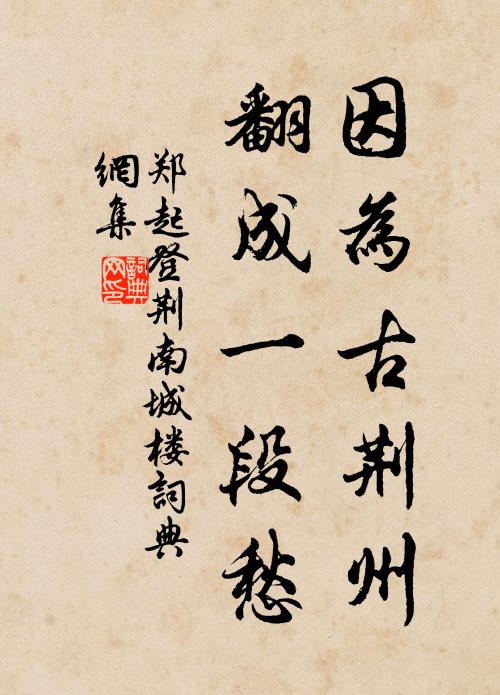 因為古荆州
翻成一段愁
郑起登荆南城楼詞典
網集
詞典
网印